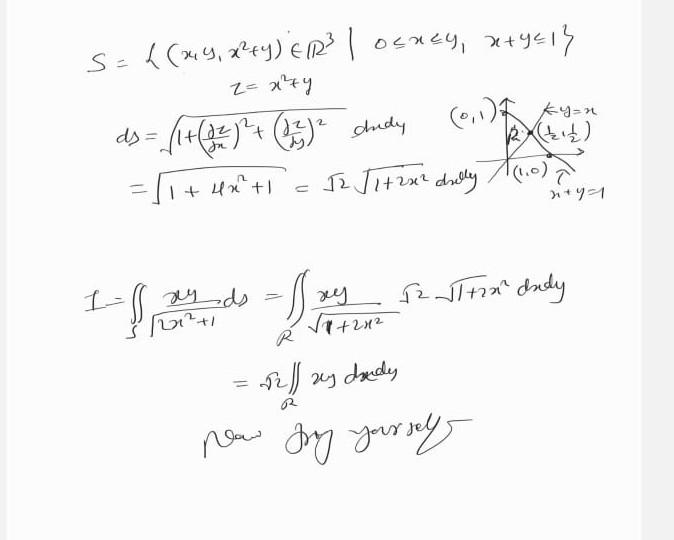 S = { (x, y, x²+y) ∈ ℝ³ | 0 ≤ x ≤ y, x+y ≤ 1 }
z = x²+y
ds = √(1+(∂z/∂x)²+(∂z/∂y)²) dxdy
(0,1)
y=x
R
(½, ½)
= √(1 + 4x²+1) = √2 √(1+2x²) dxdy
(1,0)
x+y=1
I = ∬_S xy/√(2x²+1) ds = ∬_R xy/√(1+2x²) √2 √(1+2x²) dxdy
= √2 ∬_R xy dxdy
Now try yourself